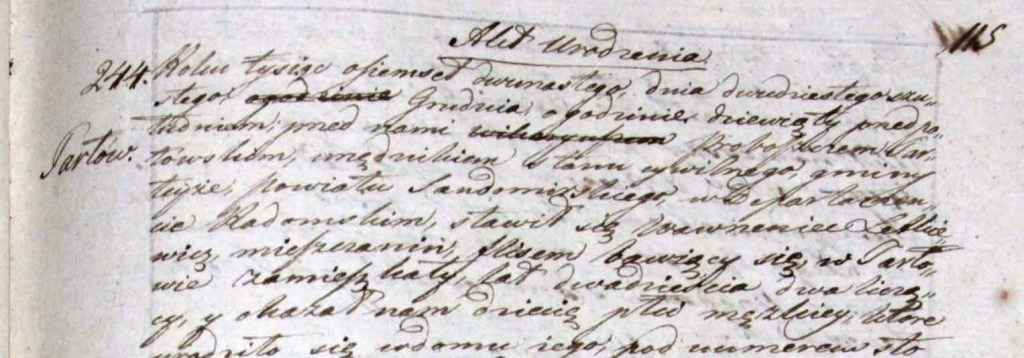 Akt Urodzenia
115
244. Roku tysiąc ośiemset dwunastego dnia dwudziestego szu-
stego ogodzinie Grudnia, o godzinie dziewiąty przed po-
Tartów. łudniem, przed nami Proboszczem Tar-
łowskim, urzędnikiem stanu cywilnego, gminy
teyże, powiatu Sandomirskiego, w Departamen-
cie Radomskim, stawił się Wawrzeniec
wicz, mieszczanin, flisem bawiący się, w Tarło-
wie zamieszkały, lat dwadzieścia dwa liczą-
cy, y okazał nam dziecię płci męzkiey, które
urodziło się w domu iego, pod numerem sto